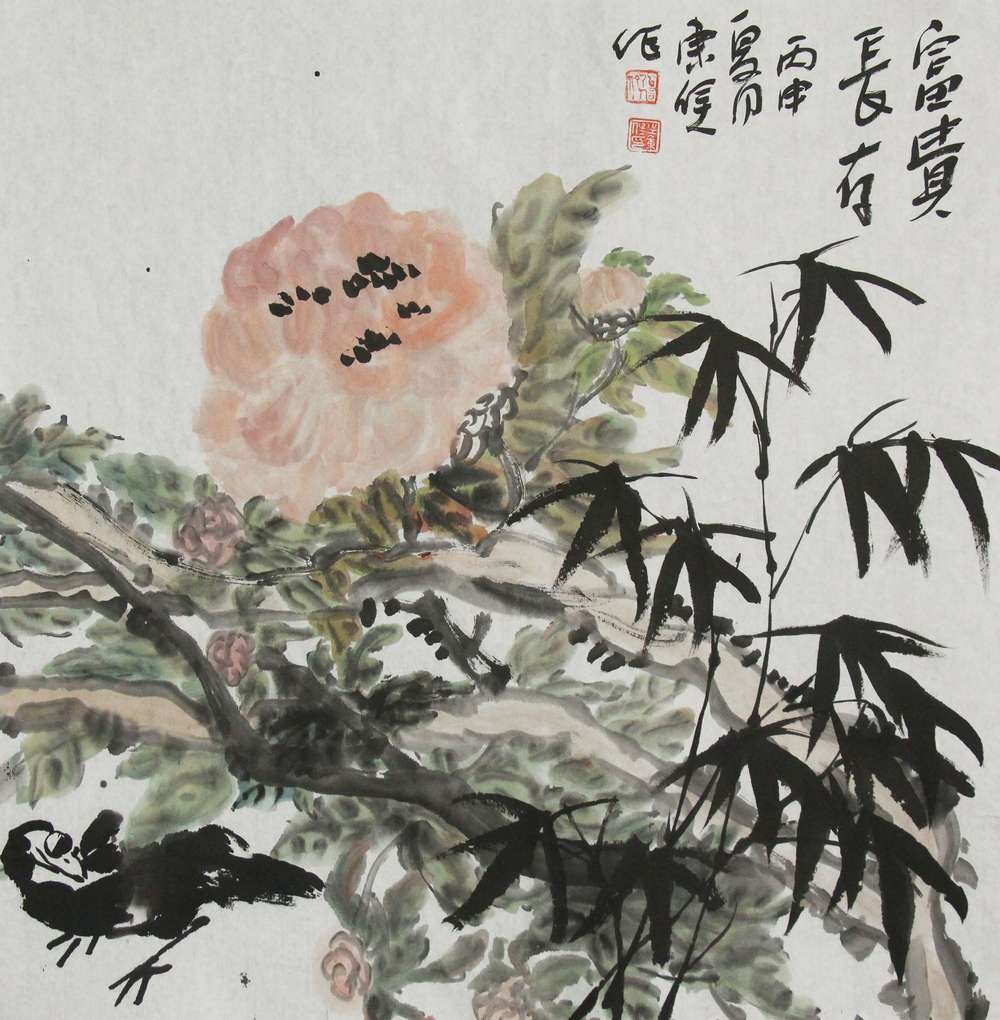 富貴
長有
丙申
夏月
康俊
作